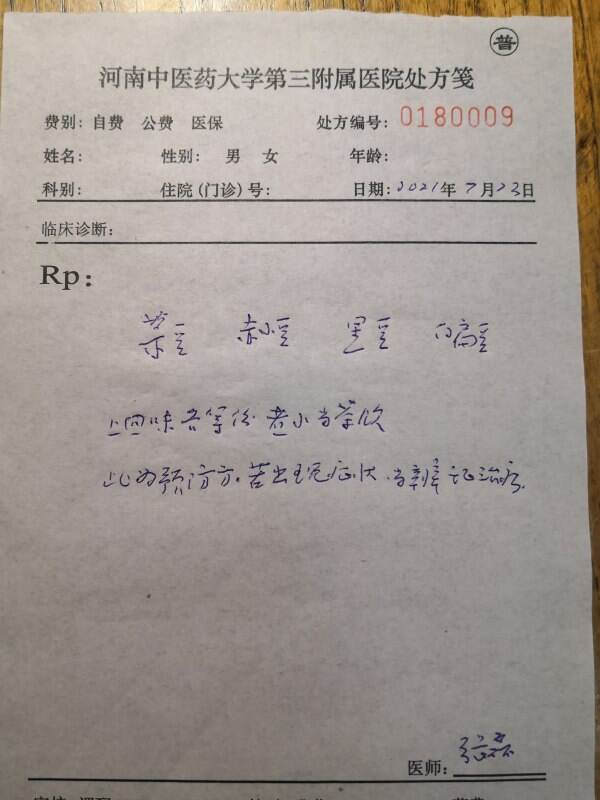 普
河南中医药大学第三附属医院处方笺
费别: 自费 公费 医保 处方编号: 0180009
姓名: 性别: 男 女 年龄:
科别: 住院(门诊)号: 日期: 2021年7月23日
临床诊断:
Rp:
赤小豆 黑豆 白扁豆
上四味各等份 煮水当茶饮
此为预防方.若出现症状,当辨证治疗.
医师: